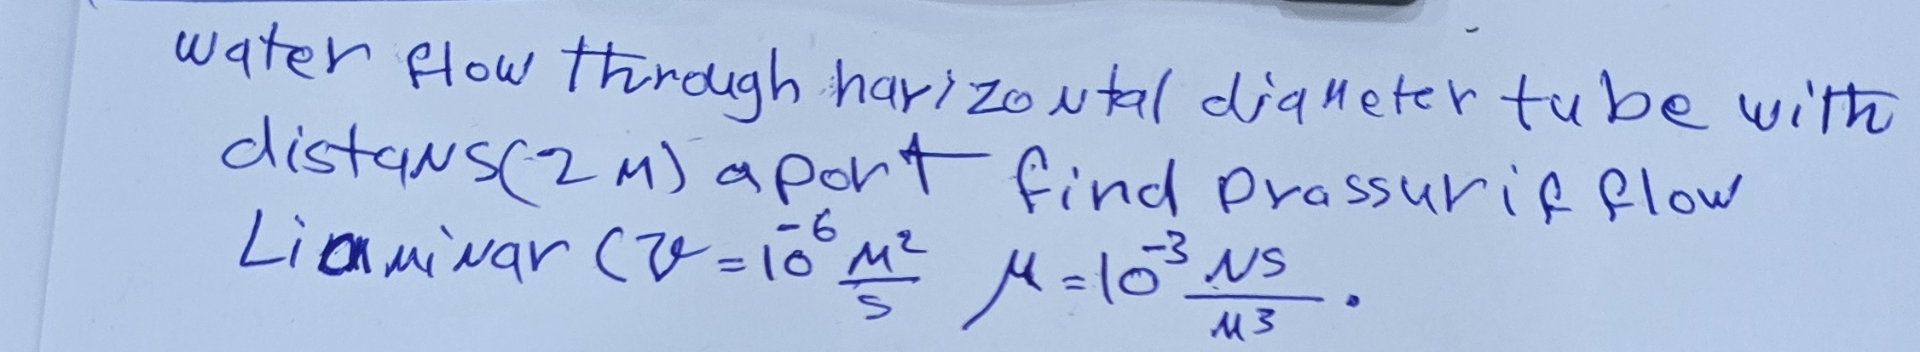 water flow through harizontal diameter tube with
distans(2 M) apart find prassur if flow
Liaminar (ν=10⁻⁶ M²/s μ=10⁻³ NS/M3 .